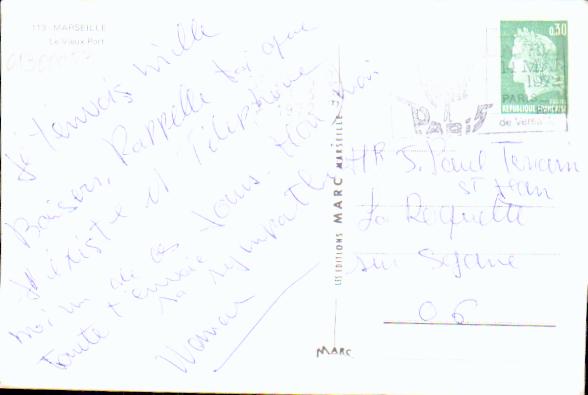 113 - MARSEILLE
Le Vieux Port
Je t'envois mille
Baisers, Rappelle toi que
j'existe et Telephone
moi un de ces jours. Mon
toute t'envoie sa sympathie
Maman
LES EDITIONS MARC MARSEILLE
MARC
0,30
REPUBLIQUE FRANÇAISE
PARIS
PARIS
de Versa
Mr J. Paul
St Jean
La Roquette
sur Siagne
06